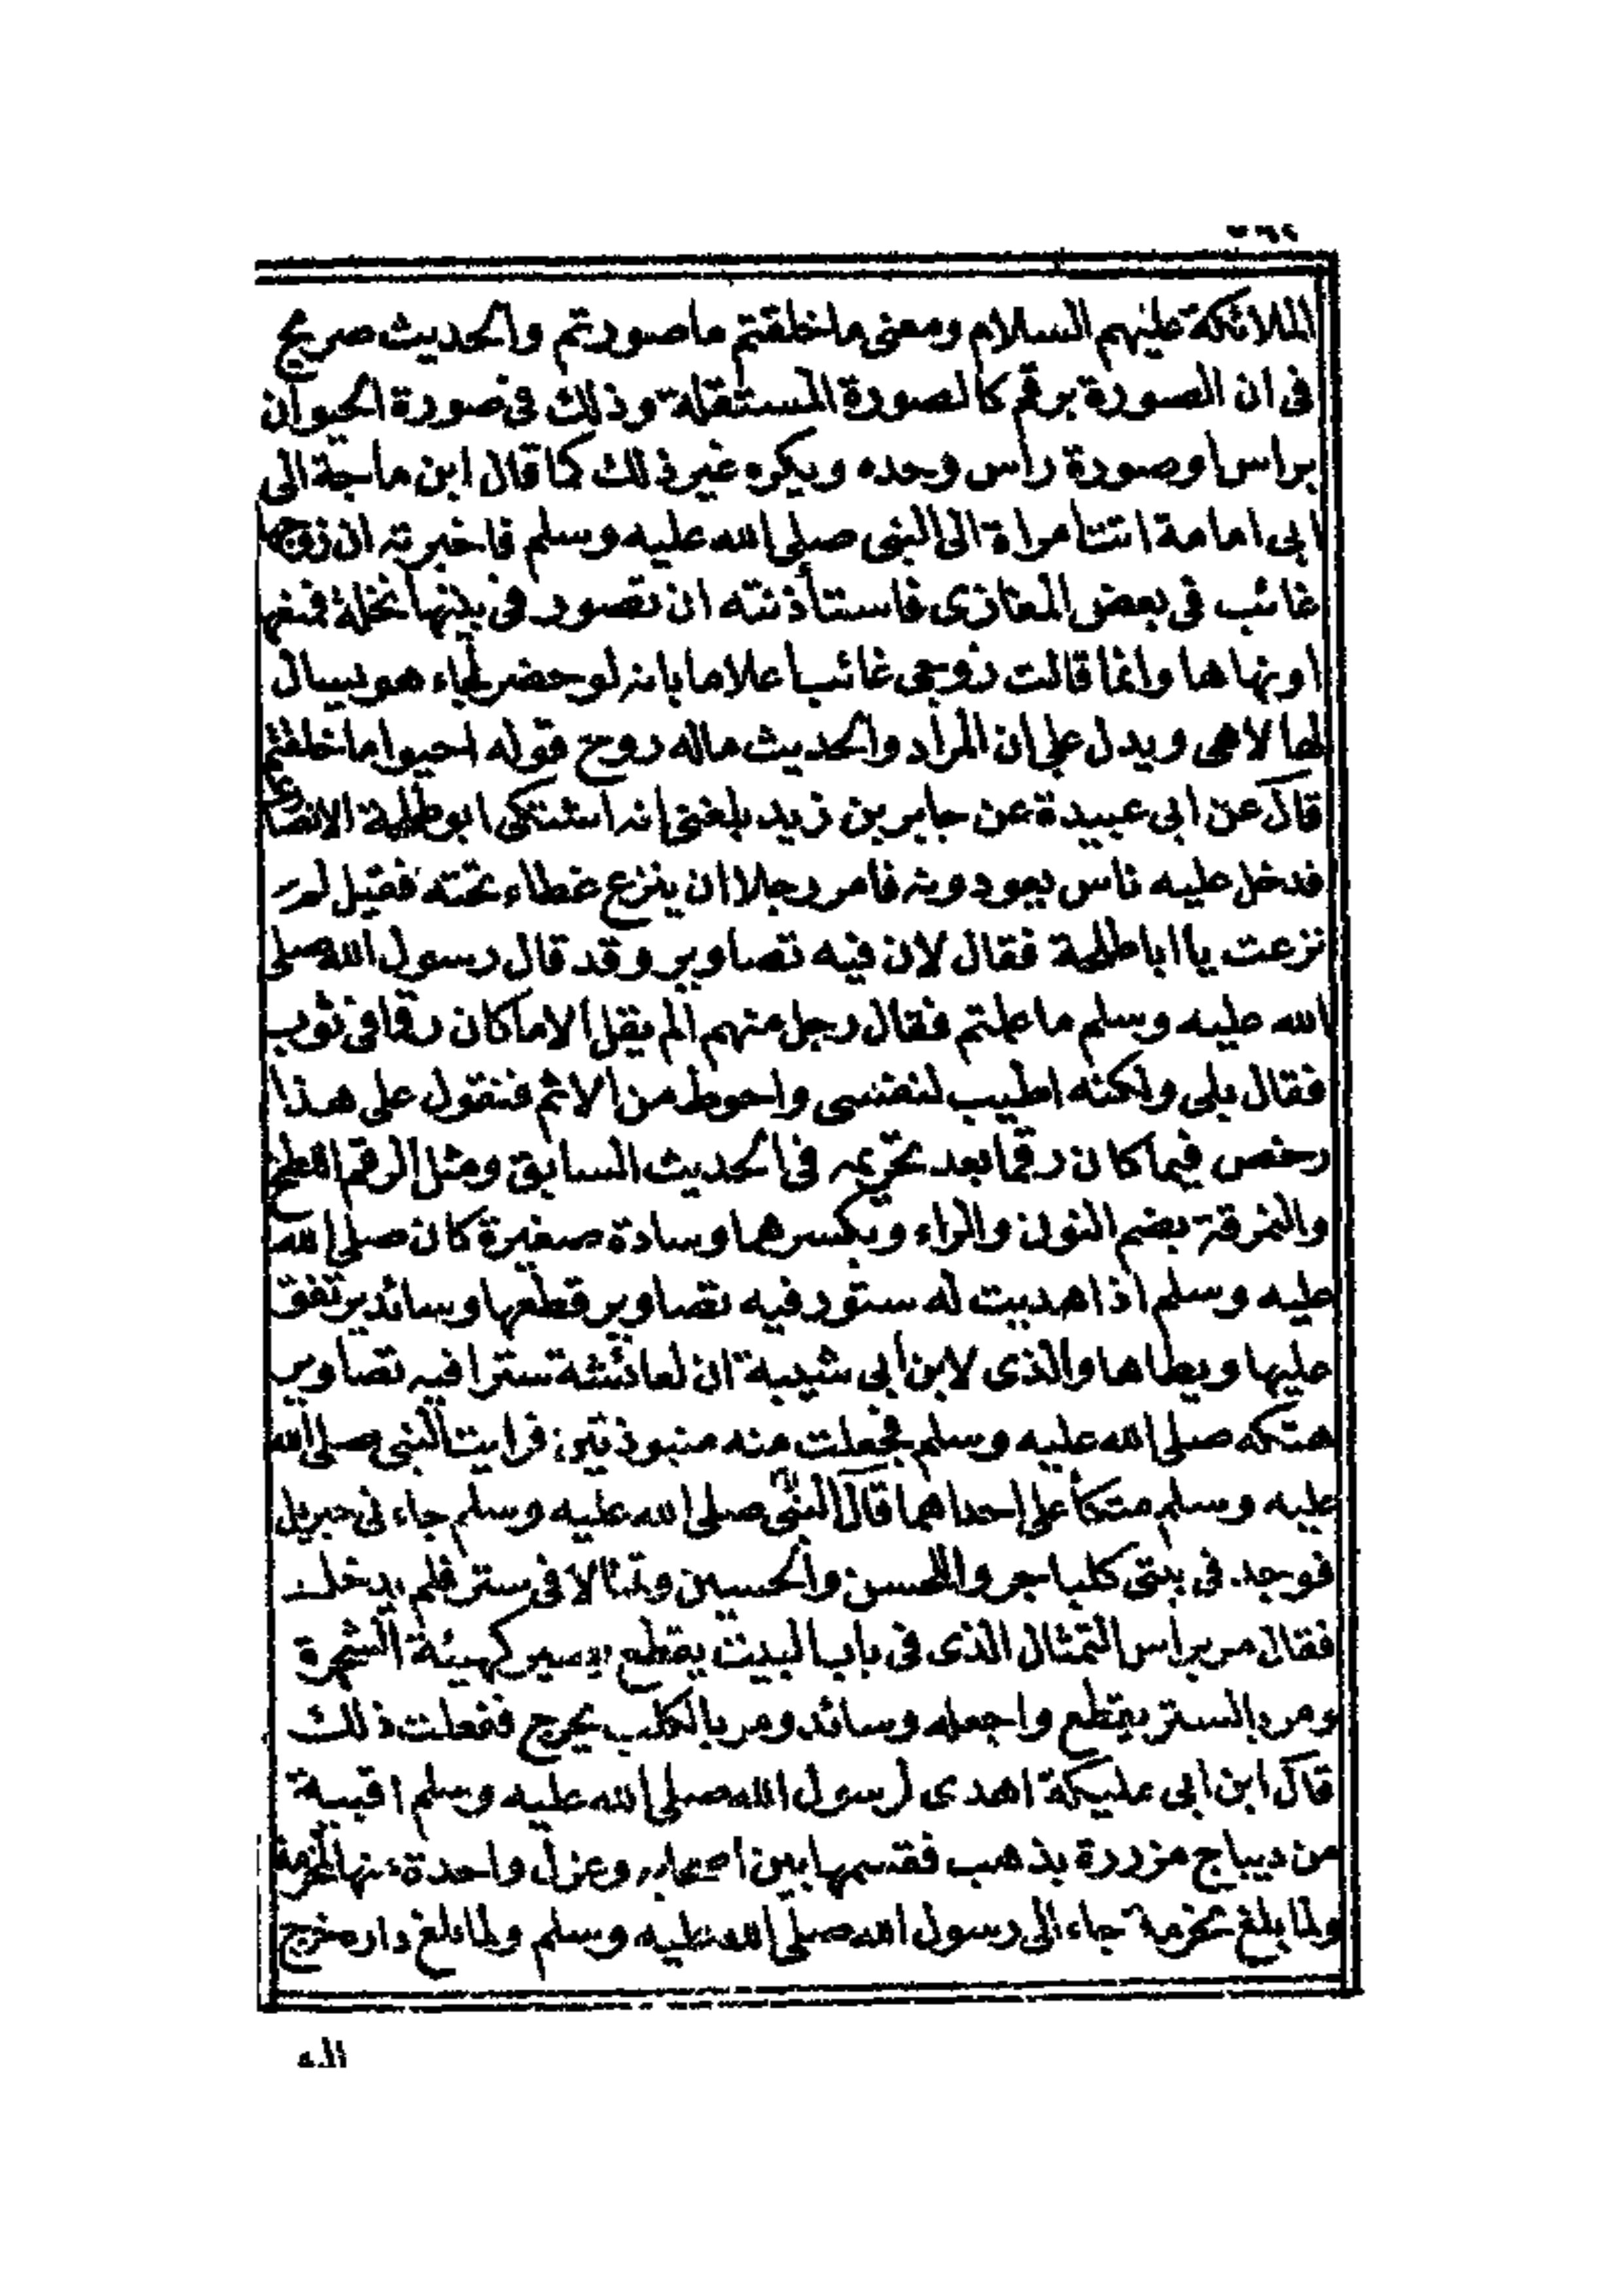 الملائكة عليهم السلام ومعنى ما خلقتم ما صورتم والحديث صريح
فى ان الصورة برقم كالصورة المستقلة وذلك فى صورة الحيوان
براس او صورة راس وحده ويكره غير ذلك كما قال ابن ماجة الى
ابى امامة اتت امراة الى النبى صلى الله عليه وسلم فاخبرته ان زوجها
غائب فى بعض المغازى فاستأذنته ان تصور فى بيتها نخلة فمنعها
او نهاها وانما قالت زوجى غائب اعلاما بانه لو حضر لجاء هو يسال
لها لا هى ويدل على ان المراد والحديث ماله روح قوله احيوا ما خلقتم
قال عن ابى عبيدة عن جابر بن زيد بلغنى انه اشتكى ابو طلحة الانصارى
فدخل عليه ناس يعودونه فامر رجلا ان ينزع غطاء تحته فقيل لم
نزعت يا ابا طلحة فقال لان فيه تصاوير وقد قال رسول الله صلى
الله عليه وسلم ما علمتم فقال رجل منهم الم يقل الا ما كان رقما فى ثوب
فقال بلى ولكنه اطيب لنفسى واحوط من الاثم فنقول على هذا
رخص فيما كان رقما بعد تحريمه فى الحديث السابق ومثل الرقم القطع
والنمرقة بضم النون والراء وبكسرهما وسادة صغيرة كان صلى الله
عليه وسلم اذا هديت له ستور فيه تصاوير قطعها وسائد يرتفق
عليها ويطاها والذى لابن ابى شيبة ان لعائشة سترا فيه تصاوير
هتكه صلى الله عليه وسلم فجعلت منه منبوذتين فرايت النبى صلى الله
عليه وسلم متكأ على احداهما قال النبى صلى الله عليه وسلم جاءنى جبريل
فوجد فى بيتى كلبا جروا للحسن والحسين وتمثالا فى ستر فلم يدخل
فقال مر براس التمثال الذى فى باب البيت يقطع يصير كهيئة الشجرة
ومر بالستر يقطع واجعله وسائد ومر بالكلب يخرج ففعلت ذلك
قال ابن ابى مليكة اهدى لرسول الله صلى الله عليه وسلم اقبية
من ديباج مزررة بذهب فقسمها بين اصحابه وعزل واحدة منها لمخرمة
ولما بلغ مخرمة جاء الى رسول الله صلى الله عليه وسلم ولما بلغ داره خرج
اليه